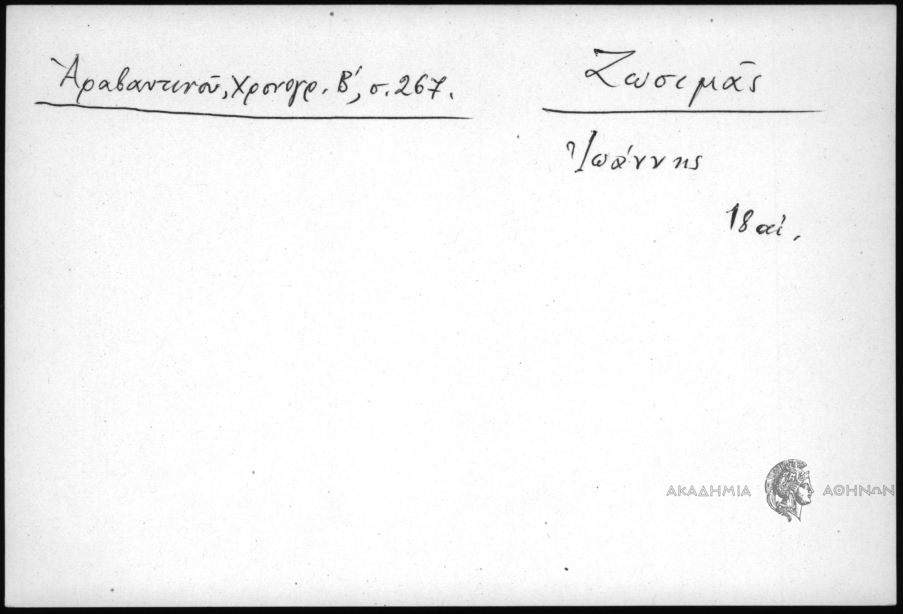 Ἀραβαντινοῦ, Χρονογρ. Β΄, σ. 267.
Ζωσιμᾶς
Ἰωάννης
18 αἰ.
ΑΚΑΔΗΜΙΑ ΑΘΗΝΩΝ